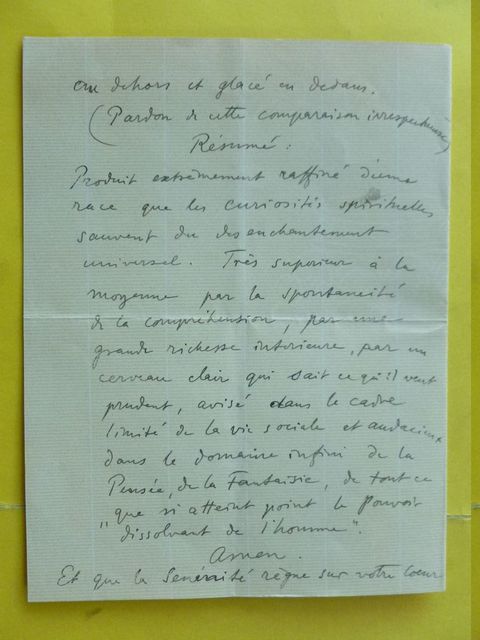 au dehors et glacé en dedans.
(Pardon de cette comparaison irrespectueuse)
Résumé :
Produit extrêmement raffiné d'une
race que les curiosités spirituelles
sauvent du desenchantement
universel. Très superieur à la
moyenne par la spontaneité
de la compréhension, par une
grande richesse interieure, par un
cerveau clair qui sait ce qu'il veut
prudent, avisé dans le cadre
limité de la vie sociale et audacieux
dans le domaine infini de la
Pensée, de la Fantaisie, de tout ce
„que n'atteint point le Pouvoir
dissolvant de l'homme".
Amen.
Et que la Sénéraité règne sur votre Coeur